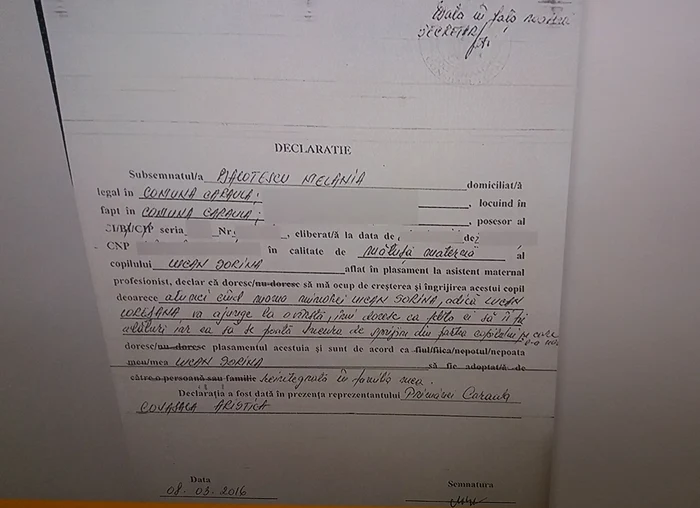 Data în fața noastră
SECRETAR
DECLARATIE
Subsemnatul/a MELANIA domiciliat/ă
legal în COMUNA CARAULA; , locuind în
fapt în COMUNA CARAULA; , posesor al
C.I/B.I/C.P seria Nr. , eliberat/ă la data de de
CNP în calitate de mătușă maternă al
copilului LUCAN SORINA aflat în plasament la asistent maternal
profesionist, declar că doresc/nu doresc să mă ocup de creșterea și îngrijirea acestui copil
deoarece atunci când mama minorei LUCAN SORINA, adică LUCAN
va ajunge la îmi doresc ca fata ei să îi fie
alături iar ea să se poată bucura de sprijin din partea copilului pe care
doresc/nu doresc plasamentul acestuia și sunt de acord ca fiul/fiica/nepotul/nepoata
meu/mea LUCAN SORINA să fie adoptat/ă de
către o persoană sau familie reintegrată în familia mea.
Declarația a fost dată în prezența reprezentantului Primăriei Caraula
ARISTICA
Data
08. 03. 2016
Semnatura